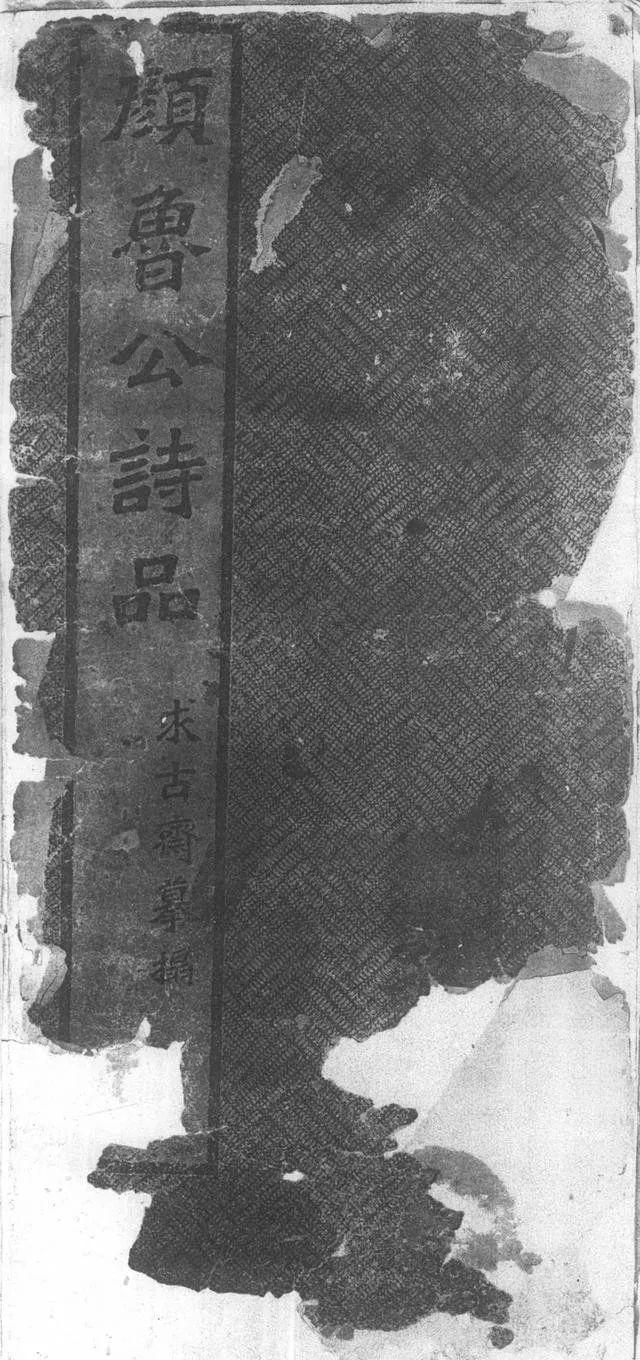 顏魯公詩品
求古齋摹搨